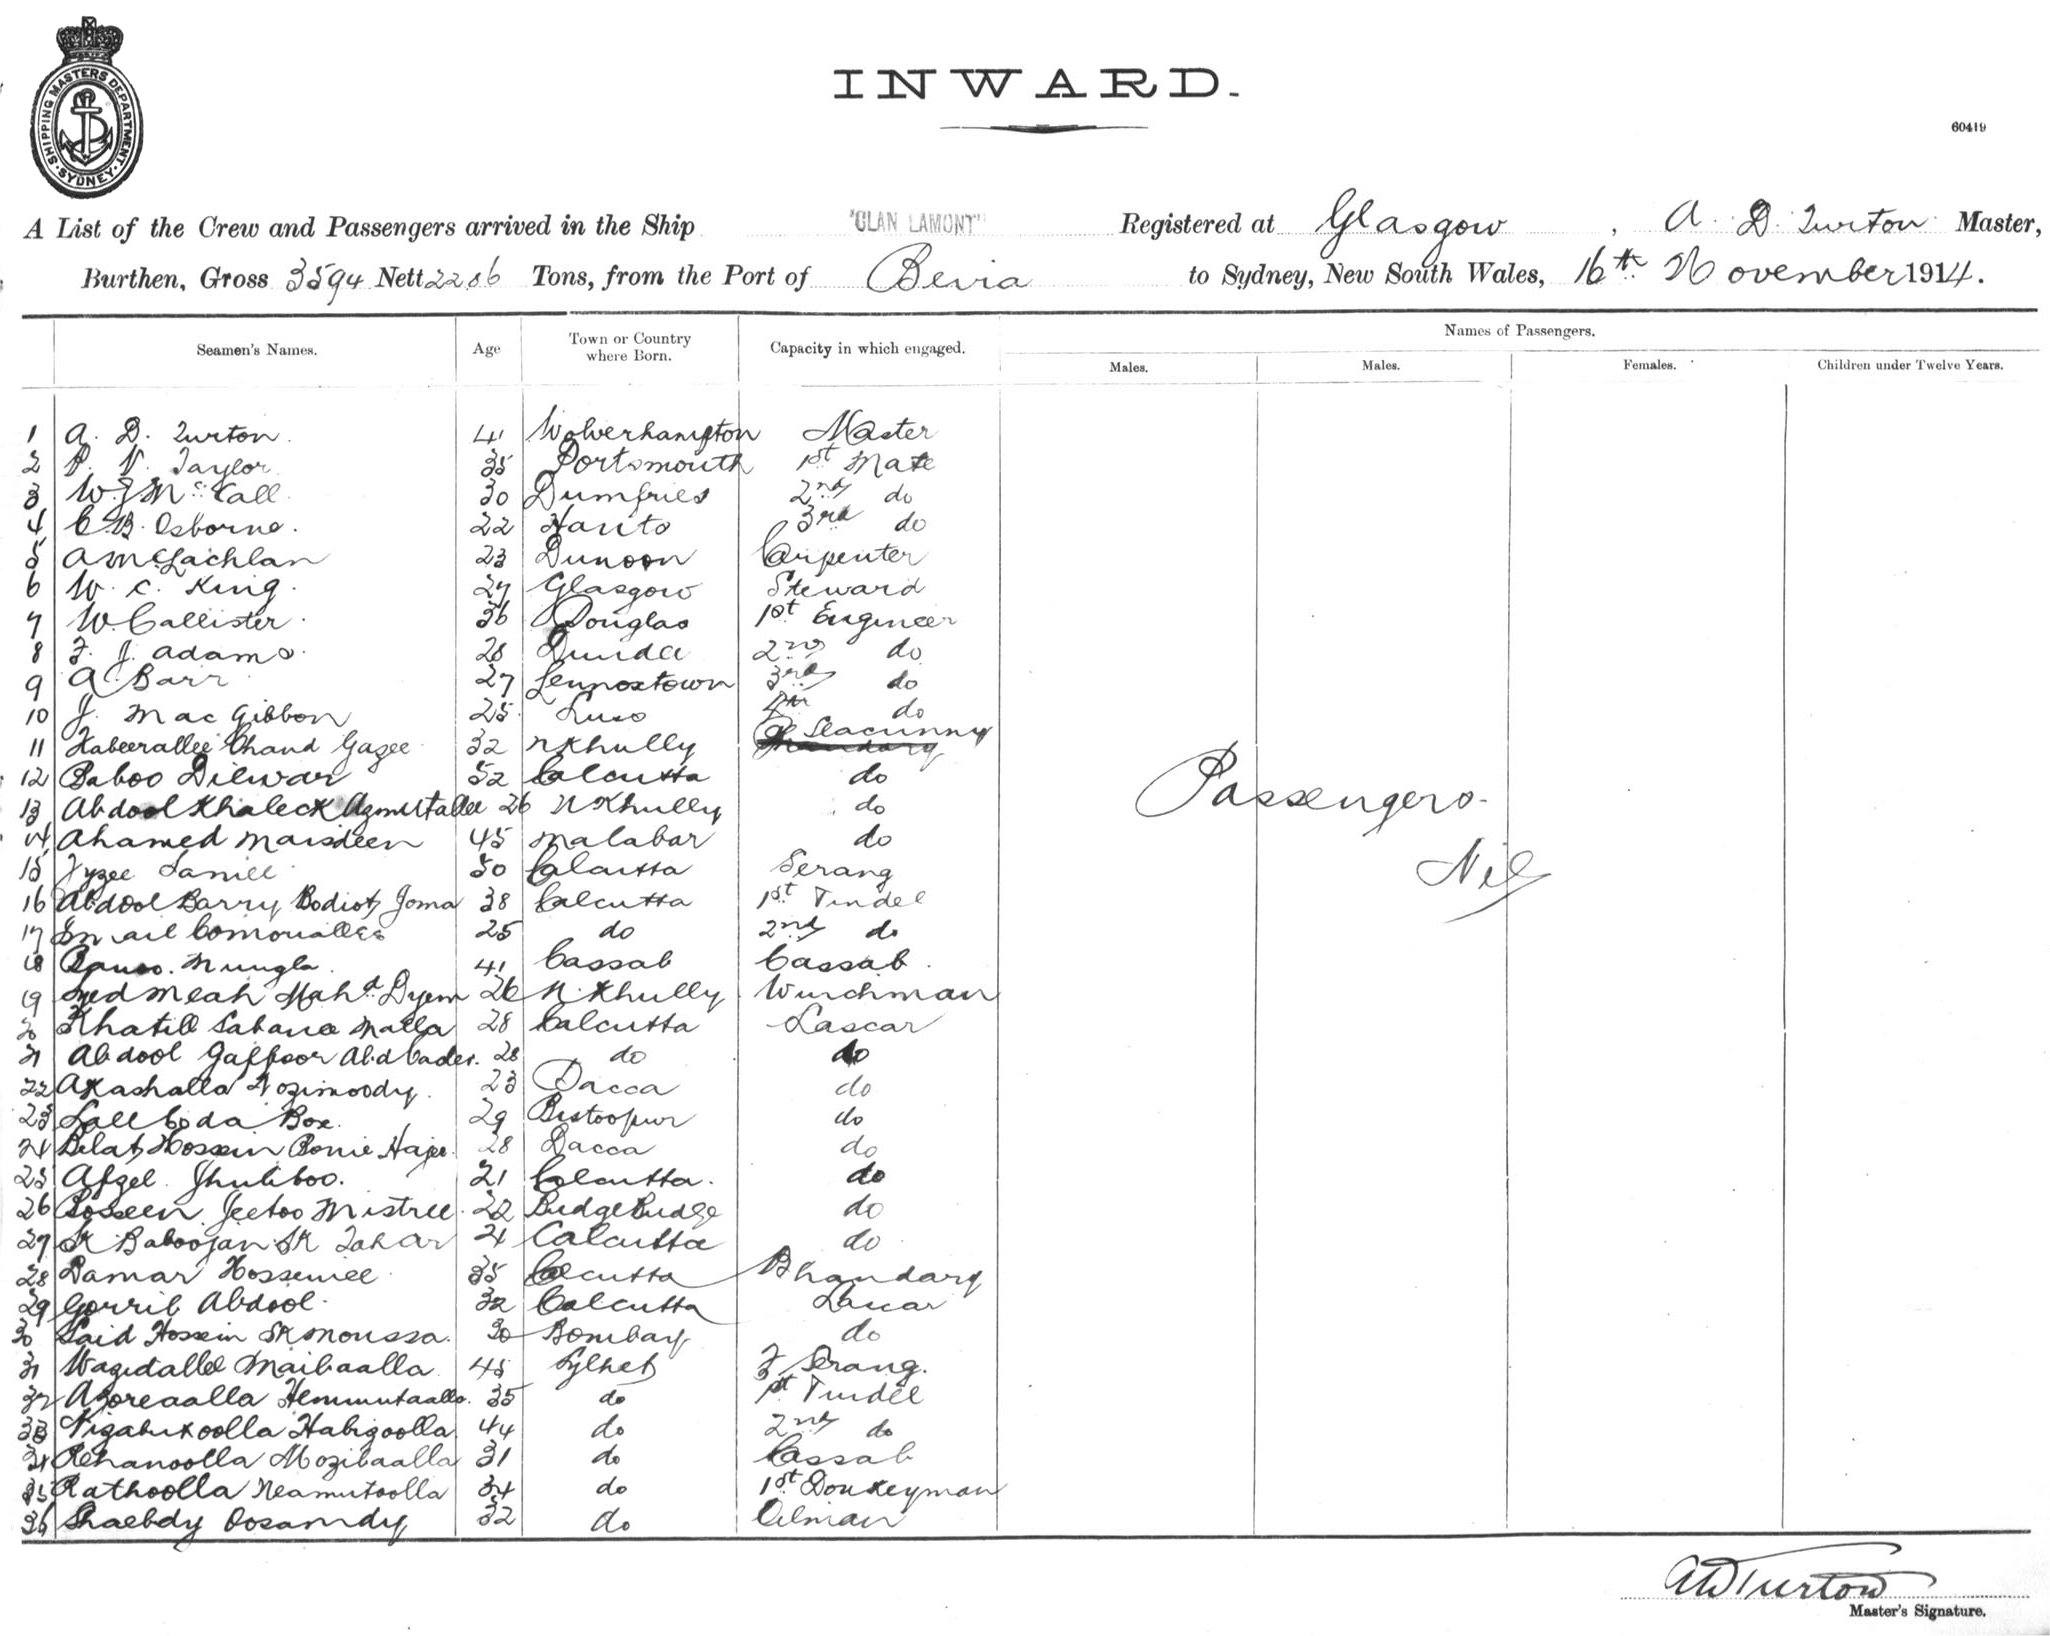 SHIPPING MASTERS DEPARTMENT
SYDNEY
INWARD.
60419
A List of the Crew and Passengers arrived in the Ship "CLAN LAMONT" Registered at Glasgow, A. D. Turton Master,
Burthen, Gross 3594 Nett 2286 Tons, from the Port of Beira to Sydney, New South Wales, 16th November 1914.
Seamen's Names. Age Town or Country where Born. Capacity in which engaged. Names of Passengers.
Males. Males. Females. Children under Twelve Years.
1 A. D. Turton. 41 Wolverhampton Master
2 P. V. Taylor 35 Portsmouth 1st Mate
3 W. J. McCall 30 Dumfries 2nd do
4 C. B. Osborne. 22 Hants 3rd do
5 A McLachlan 23 Dunoon Carpenter
6 W. C. King. 27 Glasgow Steward
7 W. Callister. 36 Douglas 1st Engineer
8 F. J. Adams. 28 Dundee 2nd do
9 A Barr 27 Lennoxtown 3rd do
10 J. MacGibbon 25 Luss 4th do
11 Habeerallee Chand Gazee 32 N Khully Seacunny
12 Baboo Dilwar 52 Calcutta do
13 Abdool Khaleck Azmutallee 26 N Khully do
14 Ahamed Maisdeen 45 Malabar do
15 Fyzee 50 Calcutta Serang
16 Abdool Barry Bodiot Joma 38 Calcutta 1st Tindel
17 25 do 2nd do
18 Mungla. 41 Cassab Cassab.
19 Syed Meah Mahd. Dyem 26 N. Khully Winchman
20 Khatill Sabana Malla 28 Calcutta Lascar
21 Abdool Gaffoor Abd Cader. 28 do do
22 Akashalla Nozimoody. 23 Dacca do
23 Lall Coda Box. 29 Bistoopur do
24 Belat Hossein Ponie Hajee. 28 Dacca do
25 Afzel Jhuliboo. 21 Calcutta. do
26 Bosseen Jeetoo Mistree. 22 Budge Budge do
27 SK Baboojan SK Tahar 21 Calcutta do
28 Damar Hossenee 35 Calcutta Bhandary
29 Gorrib Abdool. 32 Calcutta Lascar
30 Said Hossein SK Moussa. 30 Bombay do
31 Wazidallee Maibaalla 45 Sylhet F Serang.
32 Azoreaalla Hemmutaalla. 35 do 1st Tindel
33 Nizabukoolla Habigoolla 44 do 2nd do
34 Rehanoolla Mozibaalla 31 do Cassab
35 Rathoolla Neamutoolla 34 do 1st Donkeyman
36 Shaebdy Oosamdy 32 do Oilman
Passengers.
Nil
A D Turton
Master's Signature.